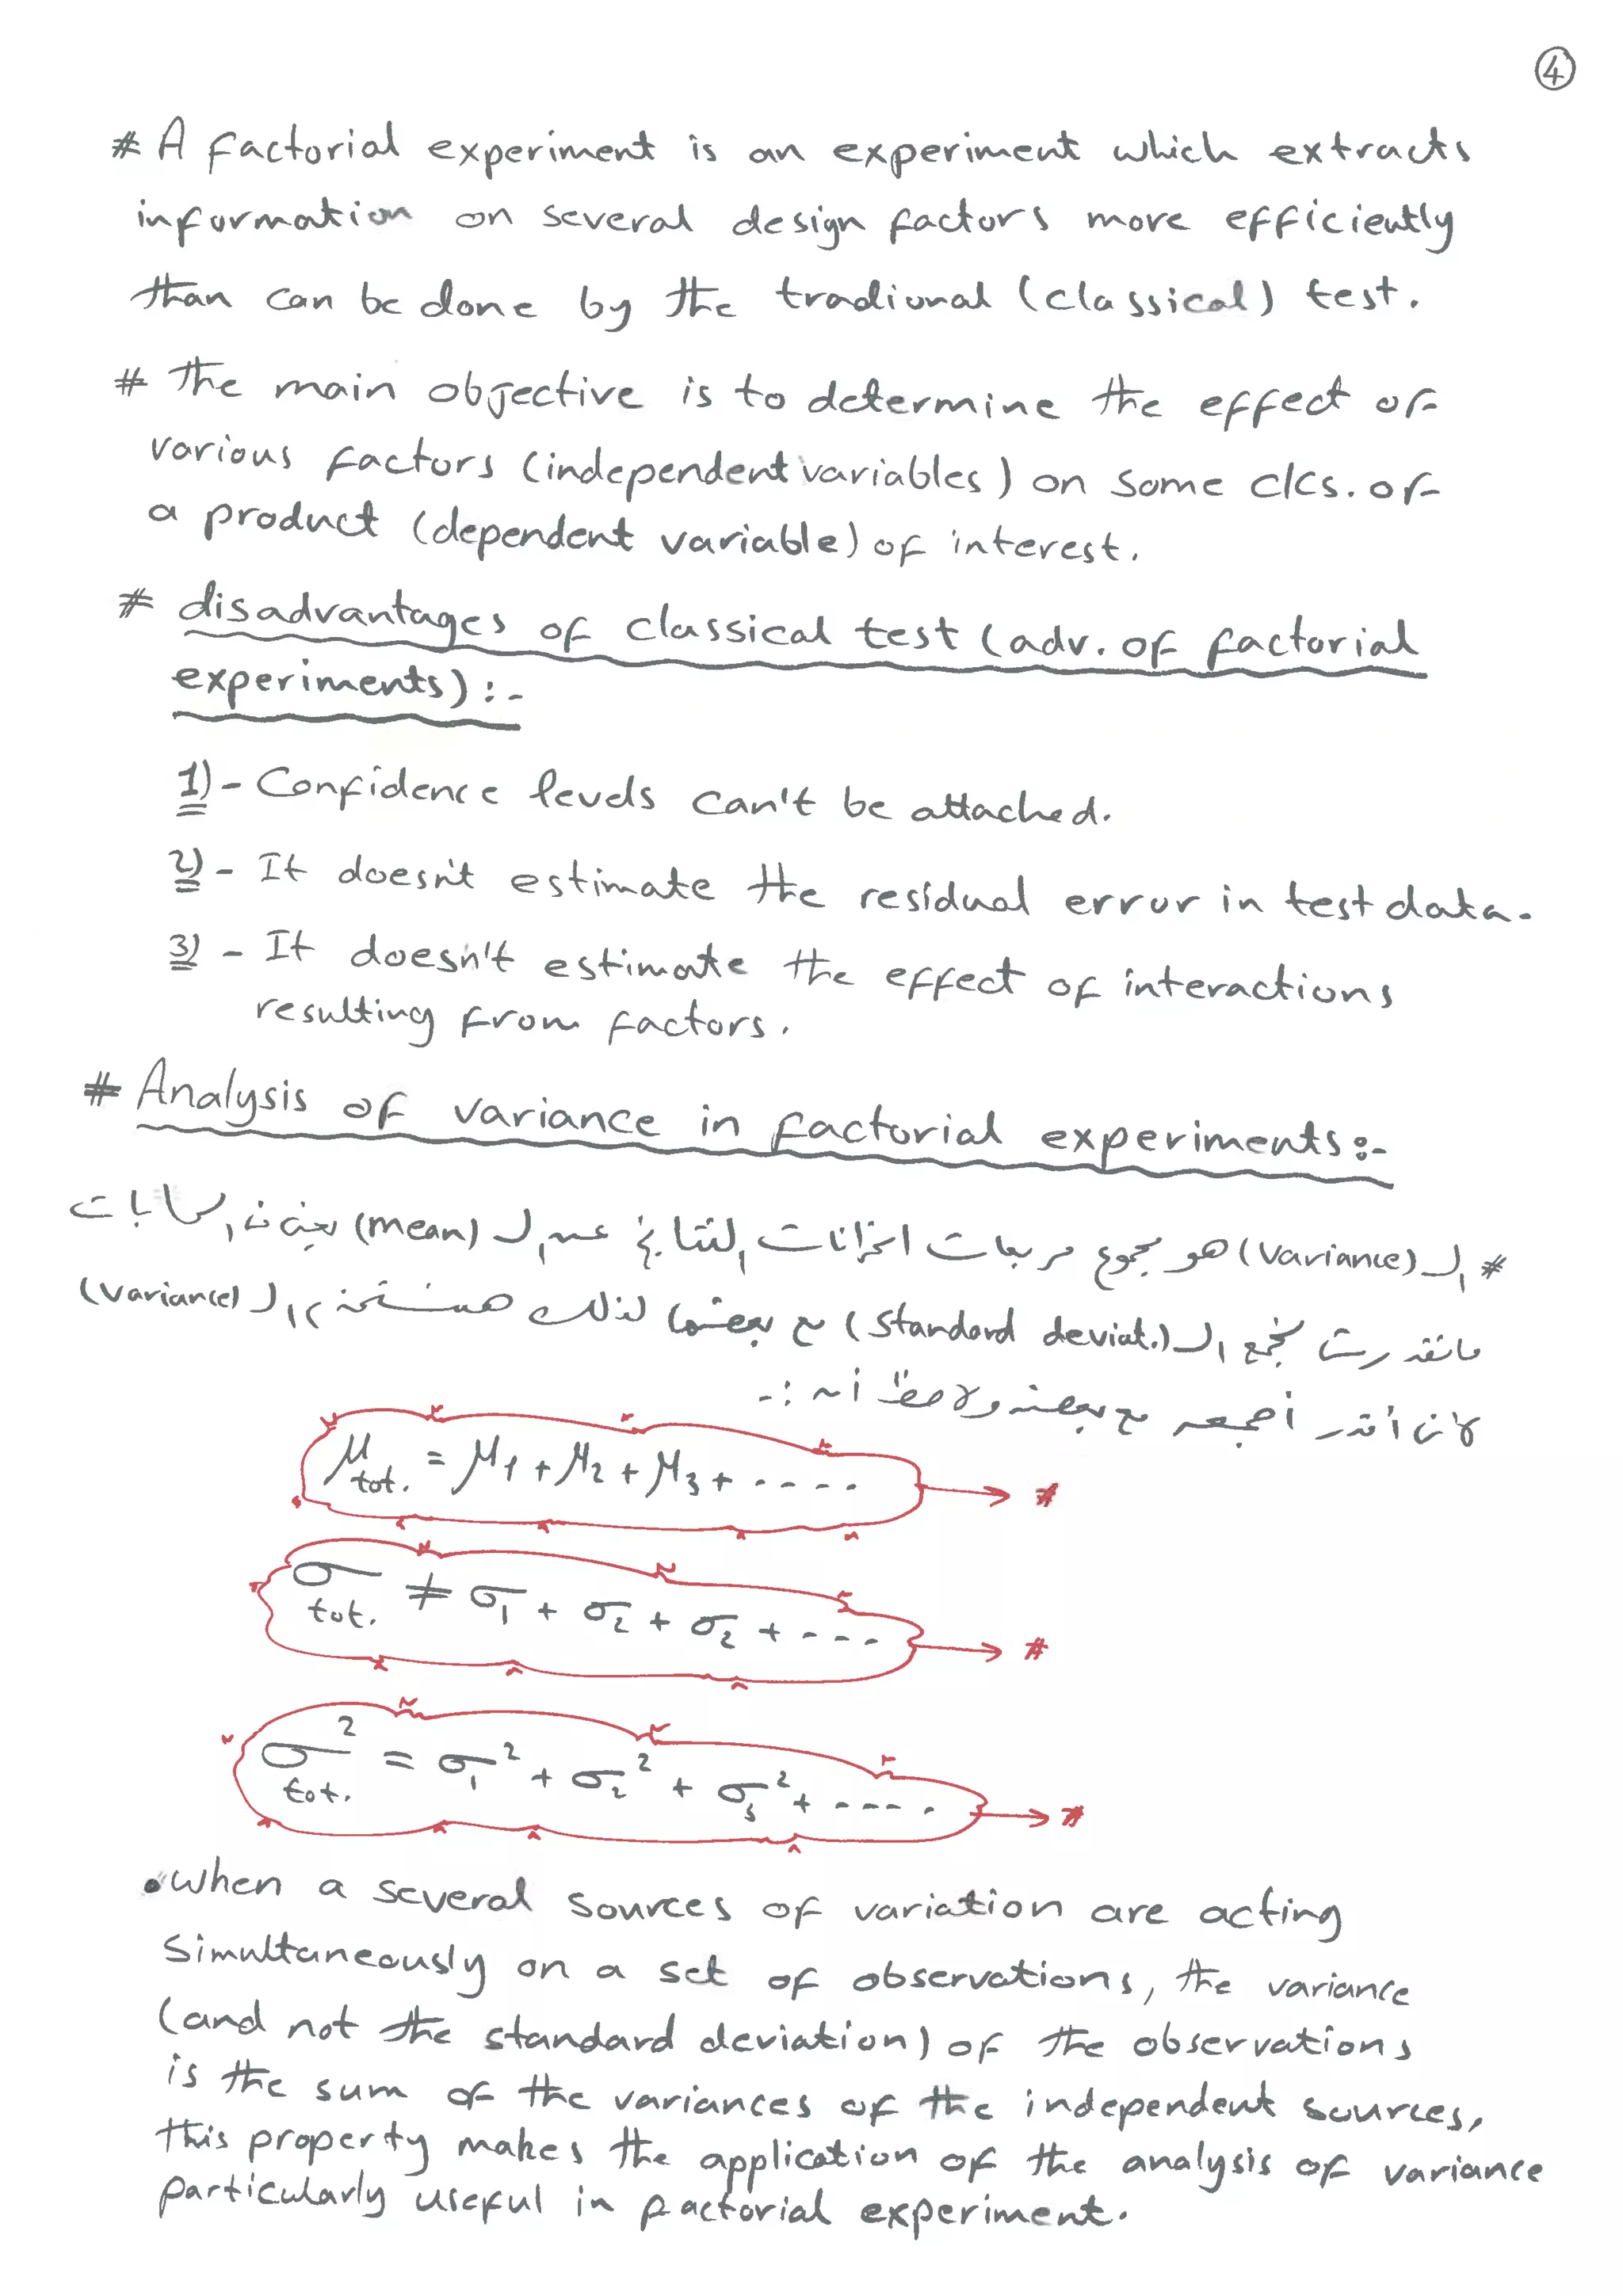 ④
# A factorial experiment is an experiment which extracts
information on several design factors more efficiently
than can be done by the tradional (classical) test.
# The main objective is to determine the effect of
various factors (independent variables) on some c/cs. of
a product (dependent variable) of interest.
# disadvantages of classical test (adv. of factorial
experiments) :-
1)- Confidence levels can't be attached.
2)- It doesn't estimate the residual error in test data.
3) - It doesn't estimate the effect of interactions
resulting from factors.
# Analysis of variance in factorial experiments:-
# الـ (variance) هو مجموع مربعات انحرافات النتايج عن الـ (mean)
مانقدرش نجمع الـ (standard deviat.) مع بعضها لذلك هنستخدم الـ (variance)
لأن أقدر أجمعه مع بعضه ولاحظ أن :-
μ tot. = μ1 + μ2 + μ3 + .....
σ tot. ≠ σ1 + σ2 + σ2 + ....
σ² tot. = σ1² + σ2² + σ3² + .....
• when a several sources of variation are acting
simultaneously on a set of observations, the variance
(and not the standard deviation) of the observations
is the sum of the variances of the independent sources,
this property makes the application of the analysis of variance
particularly useful in factorial experiment.